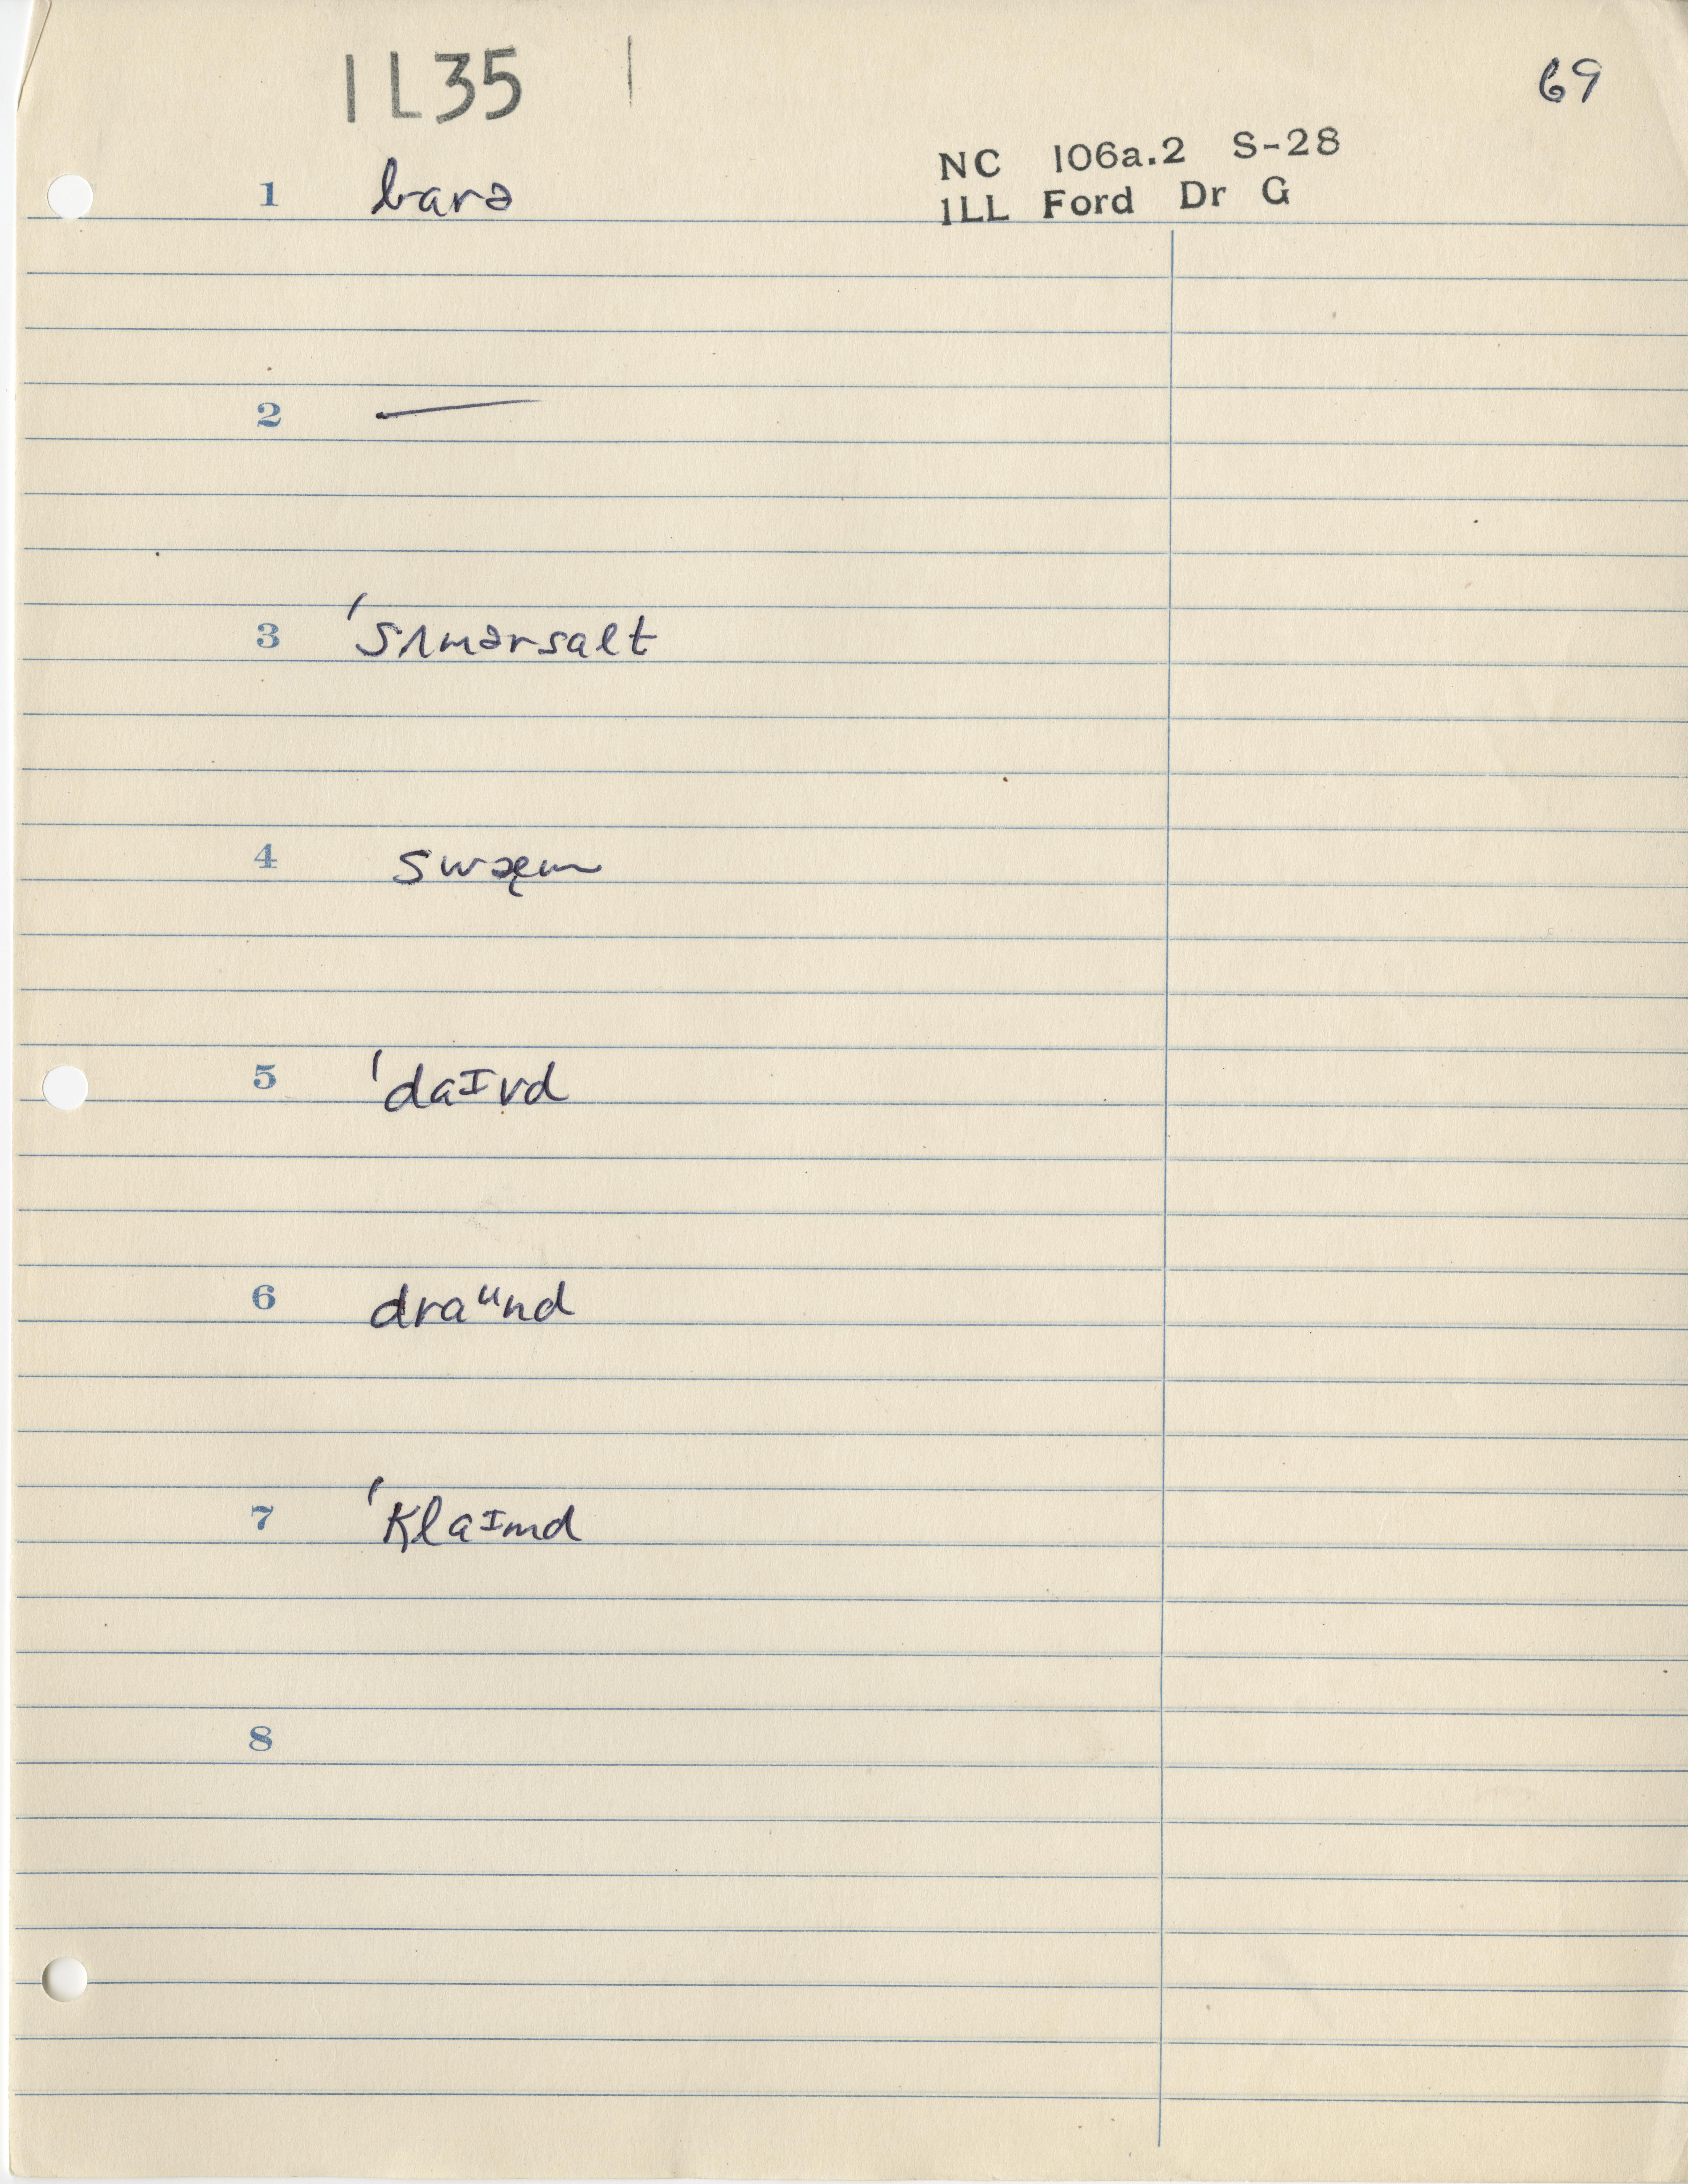 1L35 |
69
NC 106a.2 S-28
1LL Ford Dr G
1 barə
2 —
3 ˈsʌmərsalt
4 swæ̨m
5 ˈdaɪvd
6 draᵘnd
7 ˈklaɪmd
8